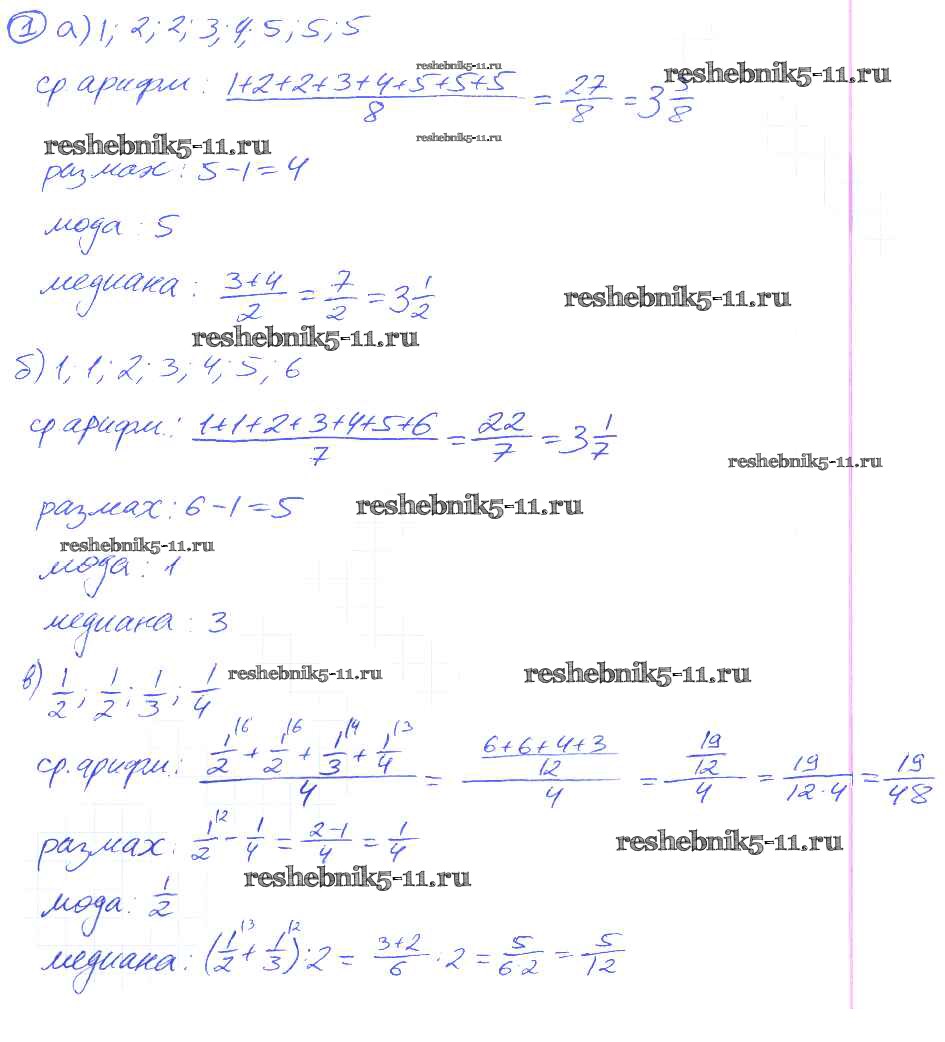 ① а) 1; 2; 2; 3; 4; 5; 5; 5
reshebnik5-11.ru
reshebnik5-11.ru
ср арифм: (1+2+2+3+4+5+5+5)/8 = 27/8 = 3 3/8
reshebnik5-11.ru
reshebnik5-11.ru
размах: 5-1=4
мода: 5
медиана: (3+4)/2 = 7/2 = 3 1/2
reshebnik5-11.ru
reshebnik5-11.ru
б) 1; 1; 2; 3; 4; 5; 6
ср арифм: (1+1+2+3+4+5+6)/7 = 22/7 = 3 1/7
reshebnik5-11.ru
размах: 6-1=5
reshebnik5-11.ru
reshebnik5-11.ru
мода: 1
медиана: 3
в) 1/2; 1/2; 1/3; 1/4
reshebnik5-11.ru
reshebnik5-11.ru
ср. арифм: (1/2^(6 + 1/2^(6 + 1/3^(4 + 1/4^(3)/4 = ((6+6+4+3)/12)/4 = (19/12)/4 = 19/(12·4) = 19/48
размах: 1/2^(2 - 1/4 = (2-1)/4 = 1/4
reshebnik5-11.ru
reshebnik5-11.ru
мода: 1/2
медиана: (1/2^(3 + 1/3^(2):2 = (3+2)/6 · 2 = 5/(6·2) = 5/12